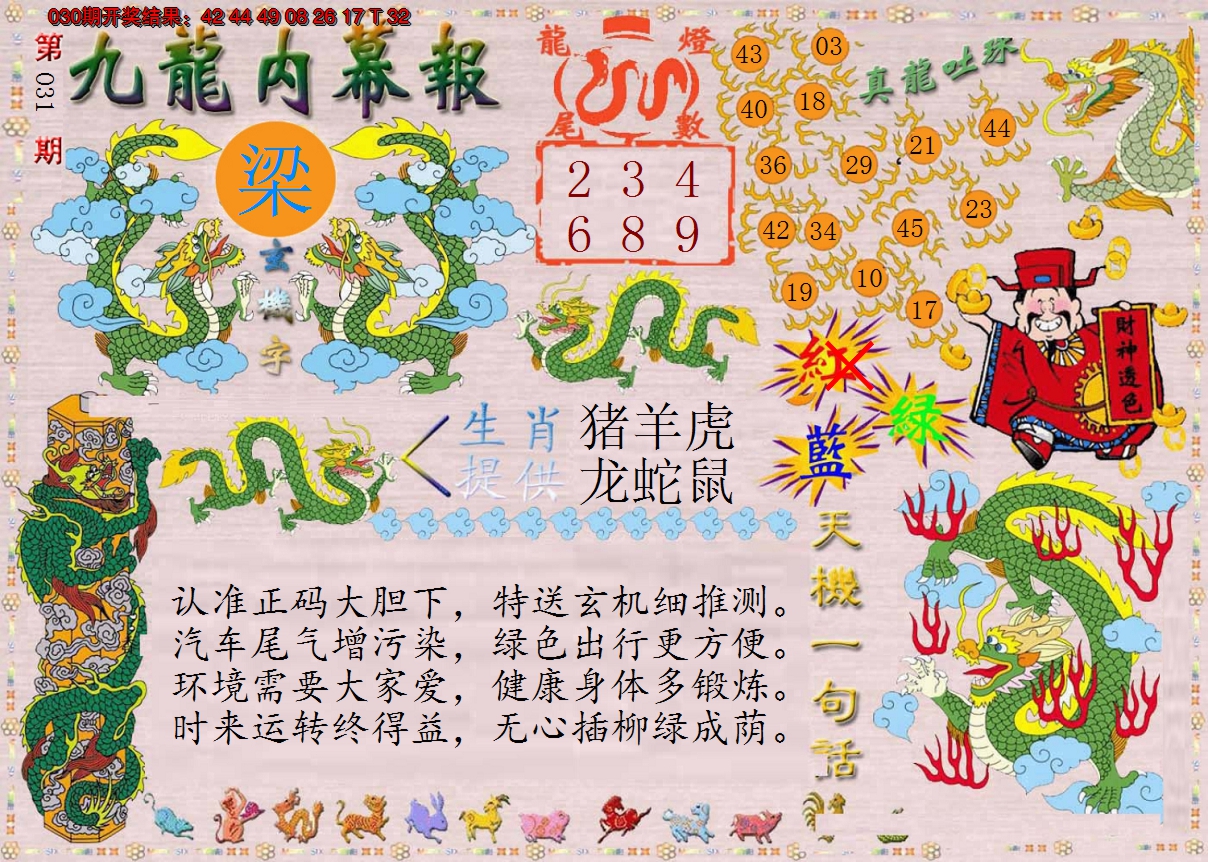 030期开奖结果：42 44 49 08 26 17 T 32
第031期
九龍内幕報
梁
玄機字
龍燈
尾數
2 3 4
6 8 9
真龍吐珠
43 03
40 18
21 44
36 29
42 34 45 23
19 10 17
財神透色
紅
綠
藍
生肖提供
猪羊虎
龙蛇鼠
天機一句話
认准正码大胆下，特送玄机细推测。
汽车尾气增污染，绿色出行更方便。
环境需要大家爱，健康身体多锻炼。
时来运转终得益，无心插柳绿成荫。